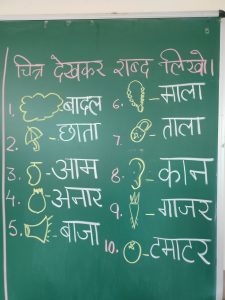 चित्र देखकर शब्द लिखो।
1. बादल
2. छाता
3. आम
4. अनार
5. बाजा
6. माला
7. ताला
8. कान
9. गाजर
10. टमाटर